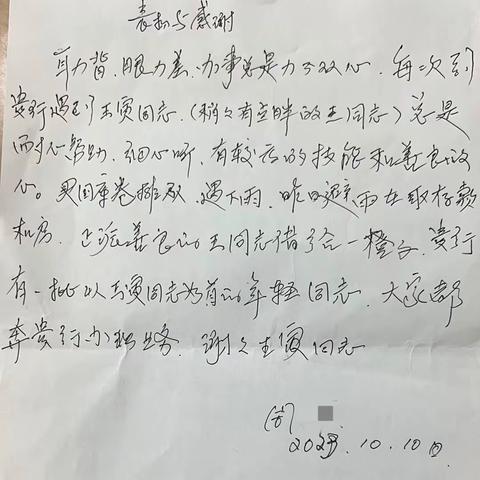 表扬与感谢
耳力背、眼力差、办事总是力不从心，每次到
贵行遇到王寅同志（稍稍有点胖的王同志）总是
耐心帮助、细心听，有较高的技能和善良的
心。买国库卷排队，遇下雨，昨日避雨在取存款
机房，上流善良的王同志借了一橙子，贵行
有一批以王寅同志为首的年轻同志，大家都
奔贵行办理业务，谢谢王寅同志
2023.10.10日